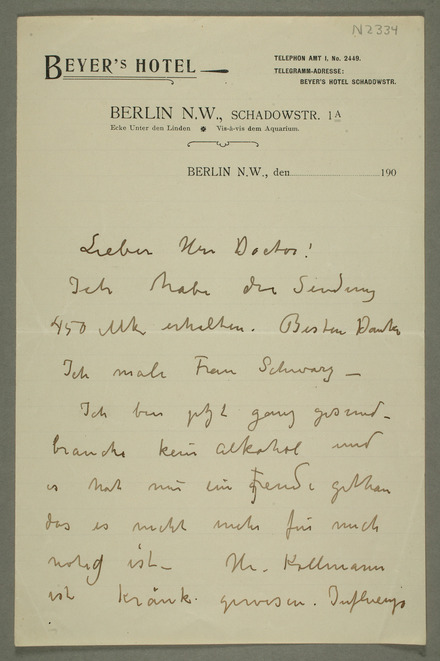 N2334
BEYER'S HOTEL
TELEPHON AMT I, No. 2449.
TELEGRAMM-ADRESSE:
BEYER'S HOTEL SCHADOWSTR.
BERLIN N.W., SCHADOWSTR. 1A
Ecke Unter den Linden ✱ Vis-à-vis dem Aquarium.
BERLIN N.W., den 190
Lieber Herr Doctor!
Ich habe die Sendung
450 Mk erhalten. Besten Dank
Ich male Frau Schwarz –
Ich bin jetzt ganz gesund –
brauche kein alkohol und
es hat mir ein gethan
das es nicht mehr für mich
notig ist – Hr. Kollmann
ist krank gewesen. Influenza